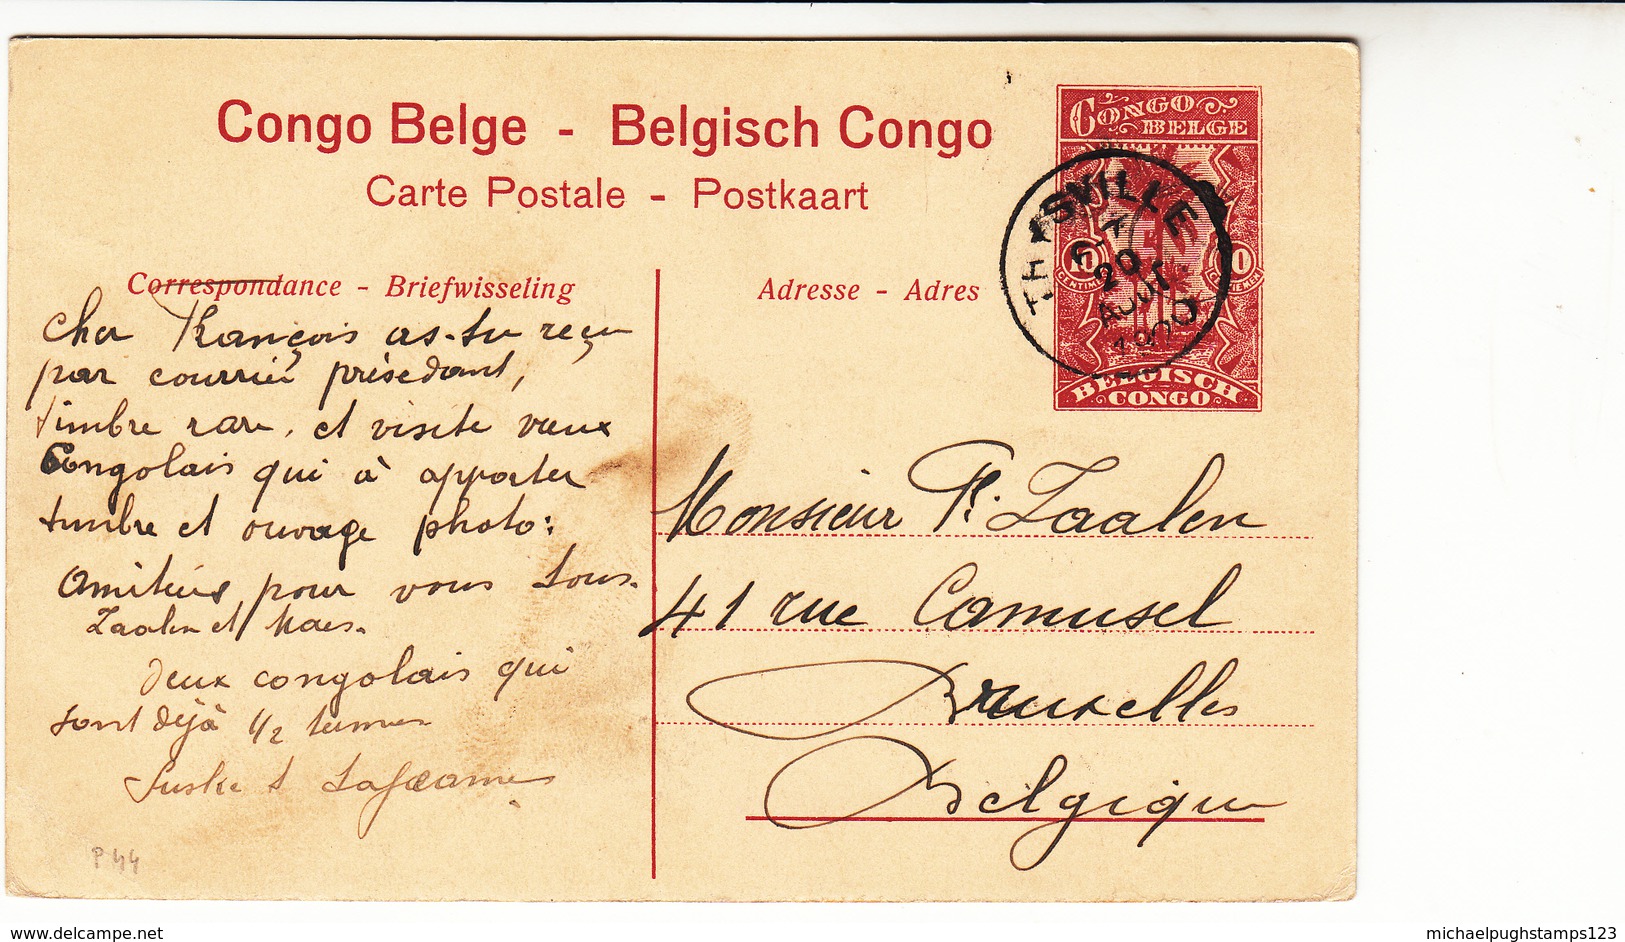 Congo Belge - Belgisch Congo
Carte Postale - Postkaart
Correspondance - Briefwisseling
Adresse - Adres
CONGO BELGE
10 CENTIMES
BELGISCH CONGO
THYSVILLE
20
AOUT
Cher François as-tu reçu
par courrier présedant,
timbre rare. et visite vieux
Congolais qui à apporter
timbre et ouvage photo:
Amitiés pour vous tous.
Zaalen et Maes.
Deux congolais qui
sont déjà 1/2
Suske
P44
Monsieur F. Zaalen
41 rue Camusel
Bruxelles
Belgique
delcampe.net
michaelpughstamps123